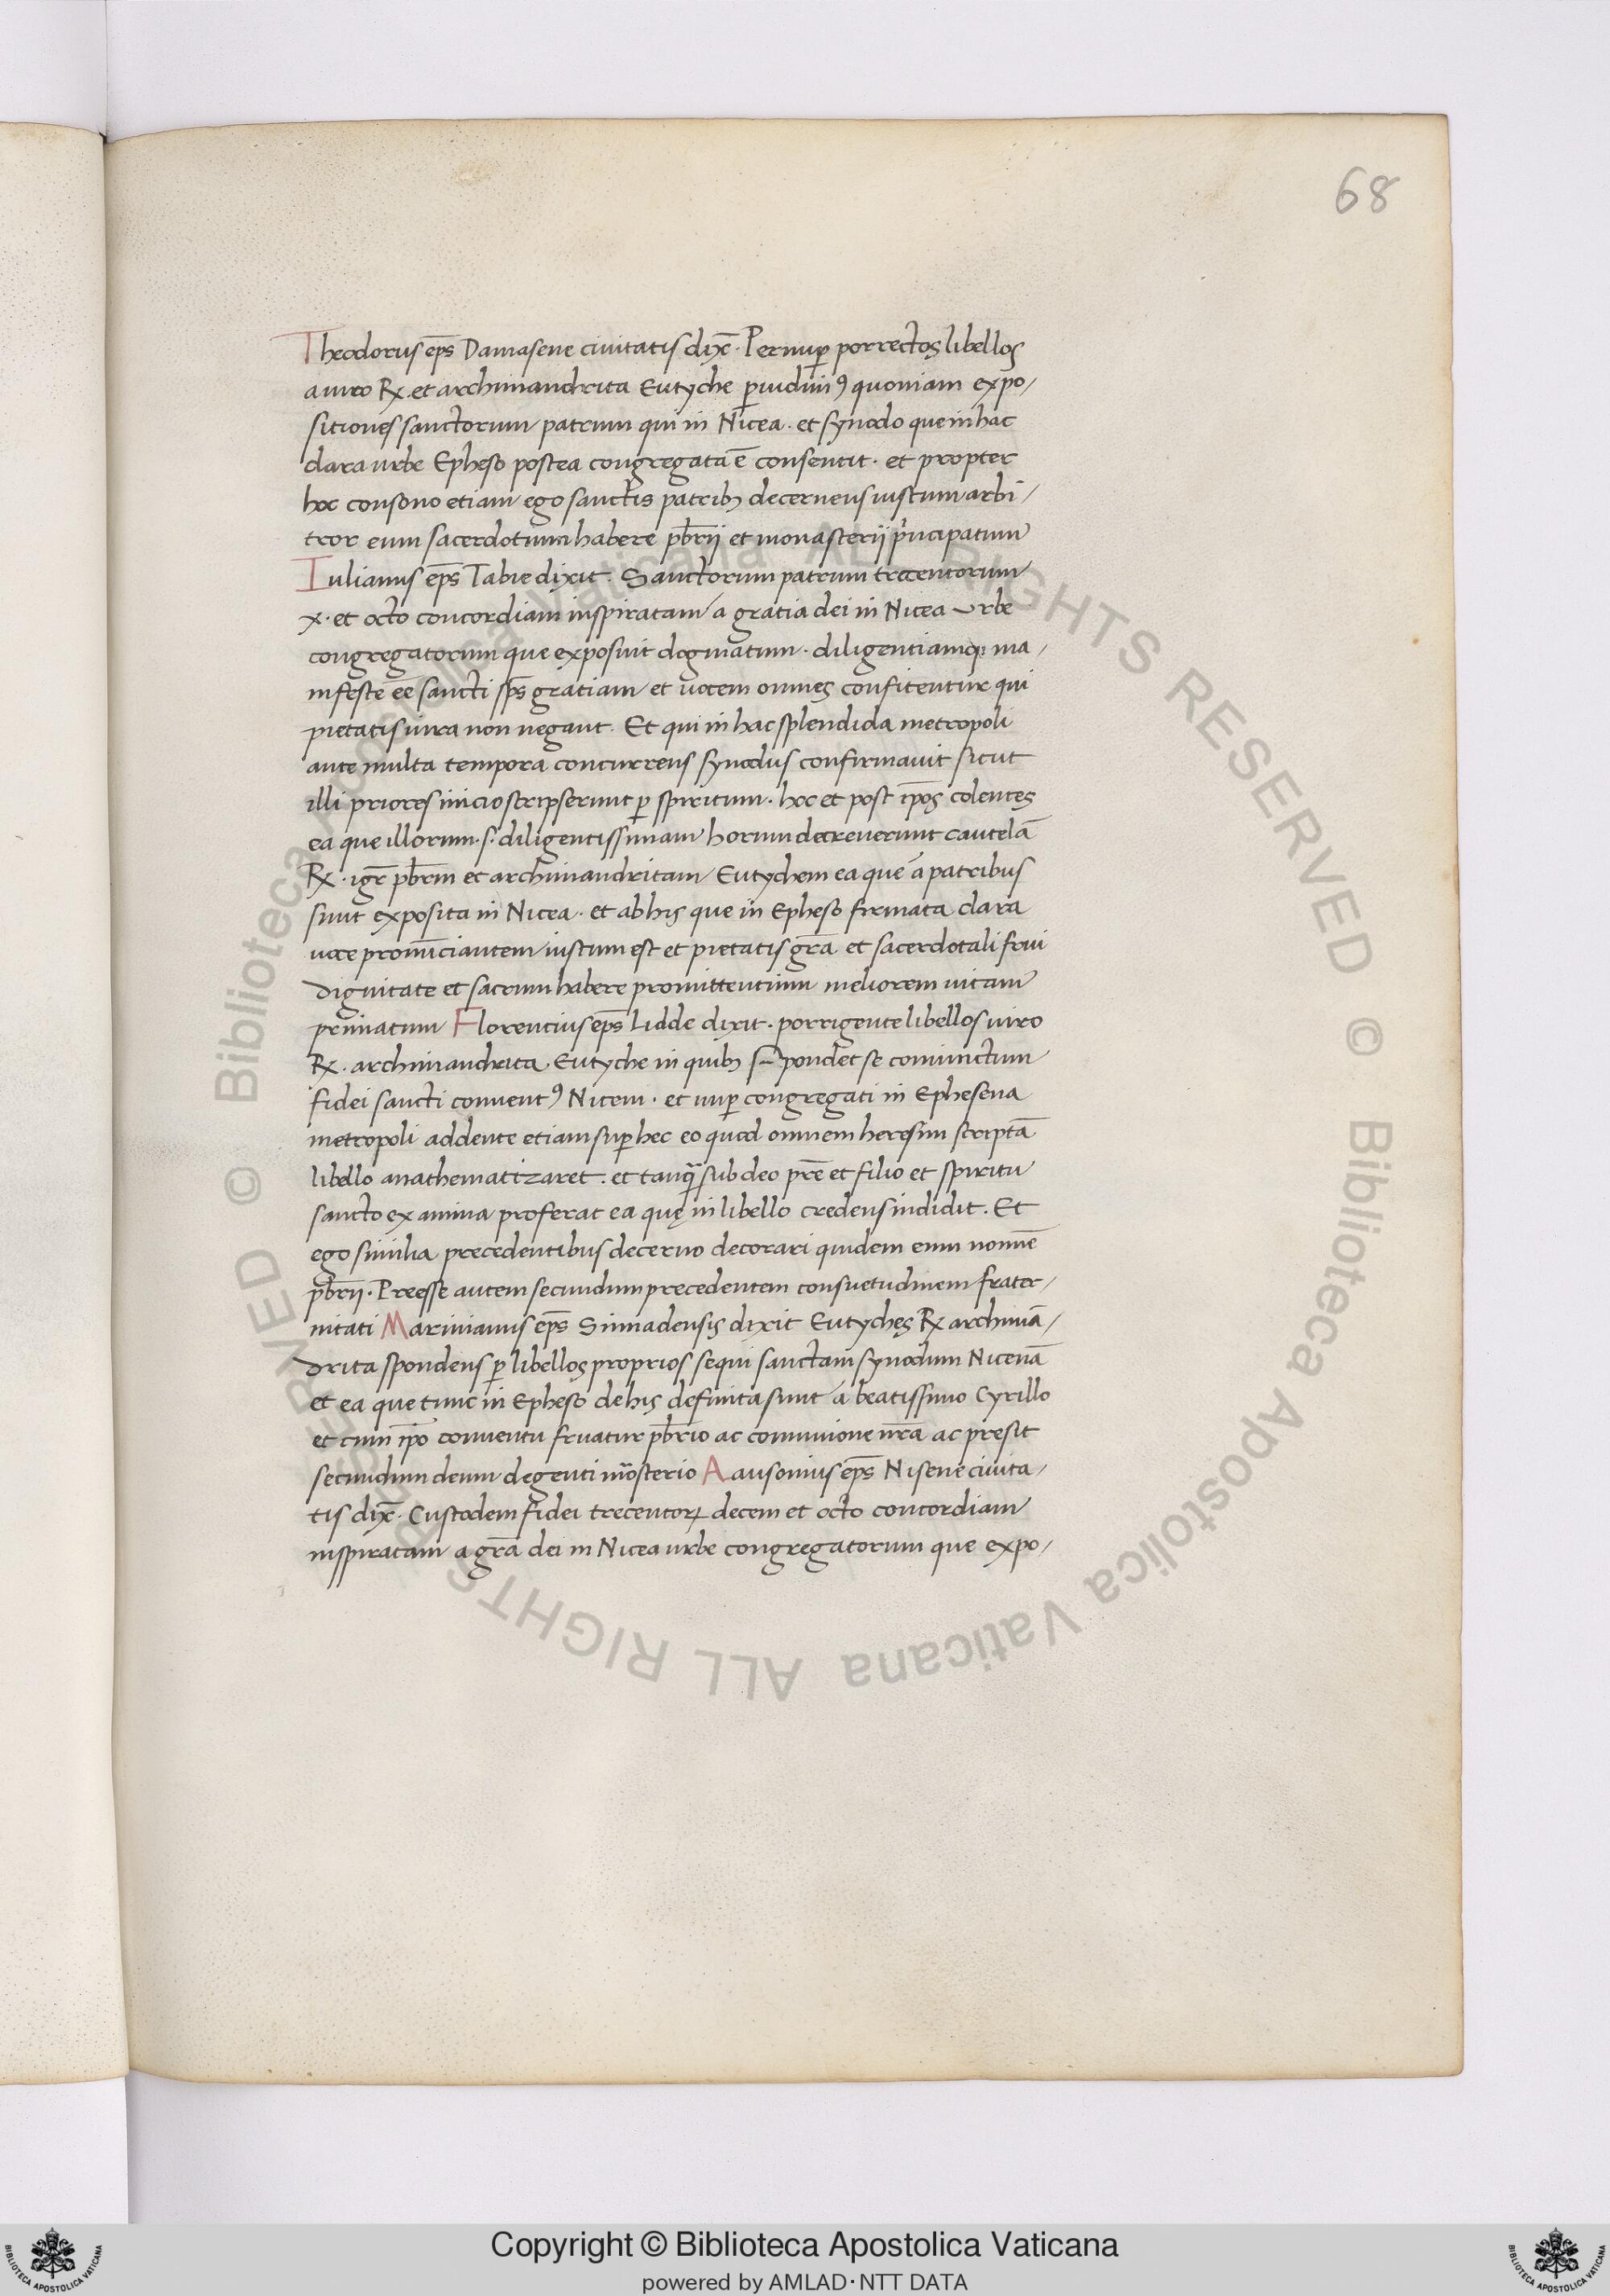 68
Theodorus ep̄s Damasene civitatis dix̄. Per nuꝑ porrectos libellos
a viro Rx. et archimandrita Eutyche ꝑvidimꝰ quoniam expo-
sitiones sanctorum patrum qui in Nicea. et synodo que in hac
clara urbe Epheso postea congregata ē consentit. et propter
hoc consono etiam ego sanctis patribꝫ decernens iustum arbi-
tror eum sacerdotium habere pb̄rii et monasterii p̓ncipatum
Iulianus ep̄s Tabie dixit. Sanctorum patrum trecentorum
x. et octo concordiam inspiratam a gratia dei in Nicea urbe
congregatorum que exposuit dogmatum. diligentiamqꝫ ma-
nifeste eē sancti sp̄s gratiam et vocem omnes confitentur qui
pietatis iura non negant. Et qui in hac splendida metropoli
ante multa tempora concurrens synodus confirmavit sicut
illi priores inicio scripserunt ꝑ spiritum. hoc et post ip̄os colentes
ea que illorum .s. diligentissimam horum decreverunt cautelā
Rx. igr̄ pb̄rm et archimandritam Eutychem ea que a patribus
sunt exposita in Nicea. et ab his que in Epheso firmata clara
voce pronūciantem iustum est et pietatis gr̄a et sacerdotali frui
dignitate et sacrum habere promittentium meliorem vitam
primatum Florentius ep̄s Lidde dixit. porrigente libellos viro
Rx. archimandrita Eutyche in quibꝫ spondet se coniunctum
fidei sancti conventꝰ Niceni. et nuꝑ congregati in Ephesena
metropoli addente etiam suꝑ hec eo quod omnem heresim scriptā
libello anathematizaret. et tanqā sub deo pr̄e et filio et spiritu
sancto ex anima proferat ea quę in libello credens indidit. Et
ego similia precedentibus decerno decorari quidem eum nomīe
pb̄rii. Preesse autem secundum precedentem consuetudinem frater-
nitati Marinianus ep̄s Sinnadensis dixit Eutyches Rx archimā-
drita spondens ꝑ libellos proprios sequi sanctam synodum Nicenā
et ea que tunc in Epheso de his definita sunt a beatissimo Cyrillo
et cum ip̄o conventu fruatur pb̄rio ac communione nr̄a ac presit
secundum deum degenti mōsterio Aausonius ep̄s Nisene civita-
tis dix̄. Custodem fidei trecentoꝝ decem et octo concordiam
inspiratam a gr̄a dei in Nicea urbe congregatorum que expo-
© Biblioteca Apostolica Vaticana ALL RIGHTS RESERVED © Biblioteca Apostolica Vaticana ALL RIGHTS RESERVED
Copyright © Biblioteca Apostolica Vaticana
powered by AMLAD·NTT DATA
BIBLIOTECA APOSTOLICA VATICANA
BIBLIOTECA APOSTOLICA VATICANA